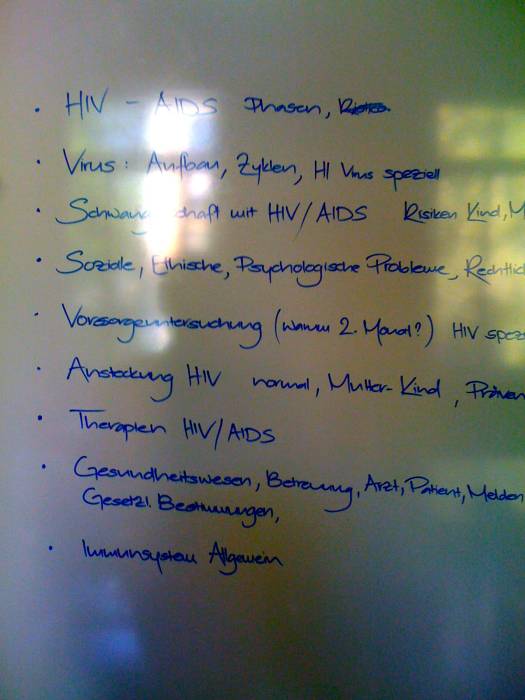 • HIV - AIDS Phasen,
• Virus: Aufbau, Zyklen, HI Virus speziell
• Schwangerschaft mit HIV/AIDS Risiken Kind, M
• Soziale, Ethische, Psychologische Probleme, Rechtlic
• Vorsorgeuntersuchung (warum 2. Monat?) HIV spez
• Ansteckung HIV normal, Mutter-Kind, Präven
• Therapien HIV/AIDS
• Gesundheitswesen, Betreuung, Arzt, Patient, Melden
Gesetzl. Bestimmungen,
• Immunsystem Allgemein